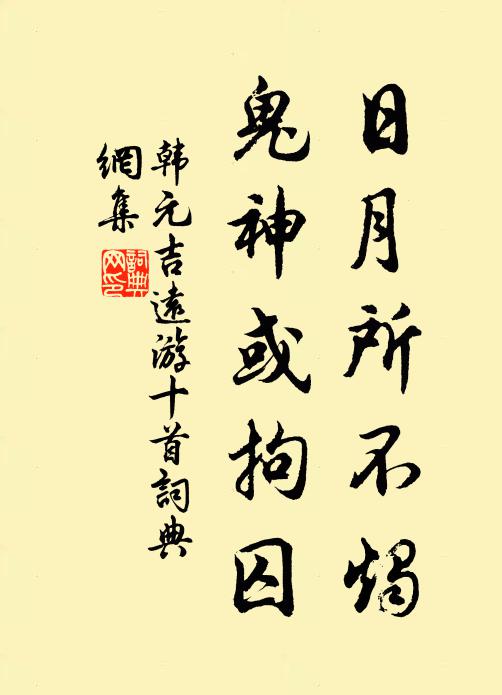 日月所不燭
鬼神或拘囚
韩元吉遠游十首詞典
網集
詞典
网印